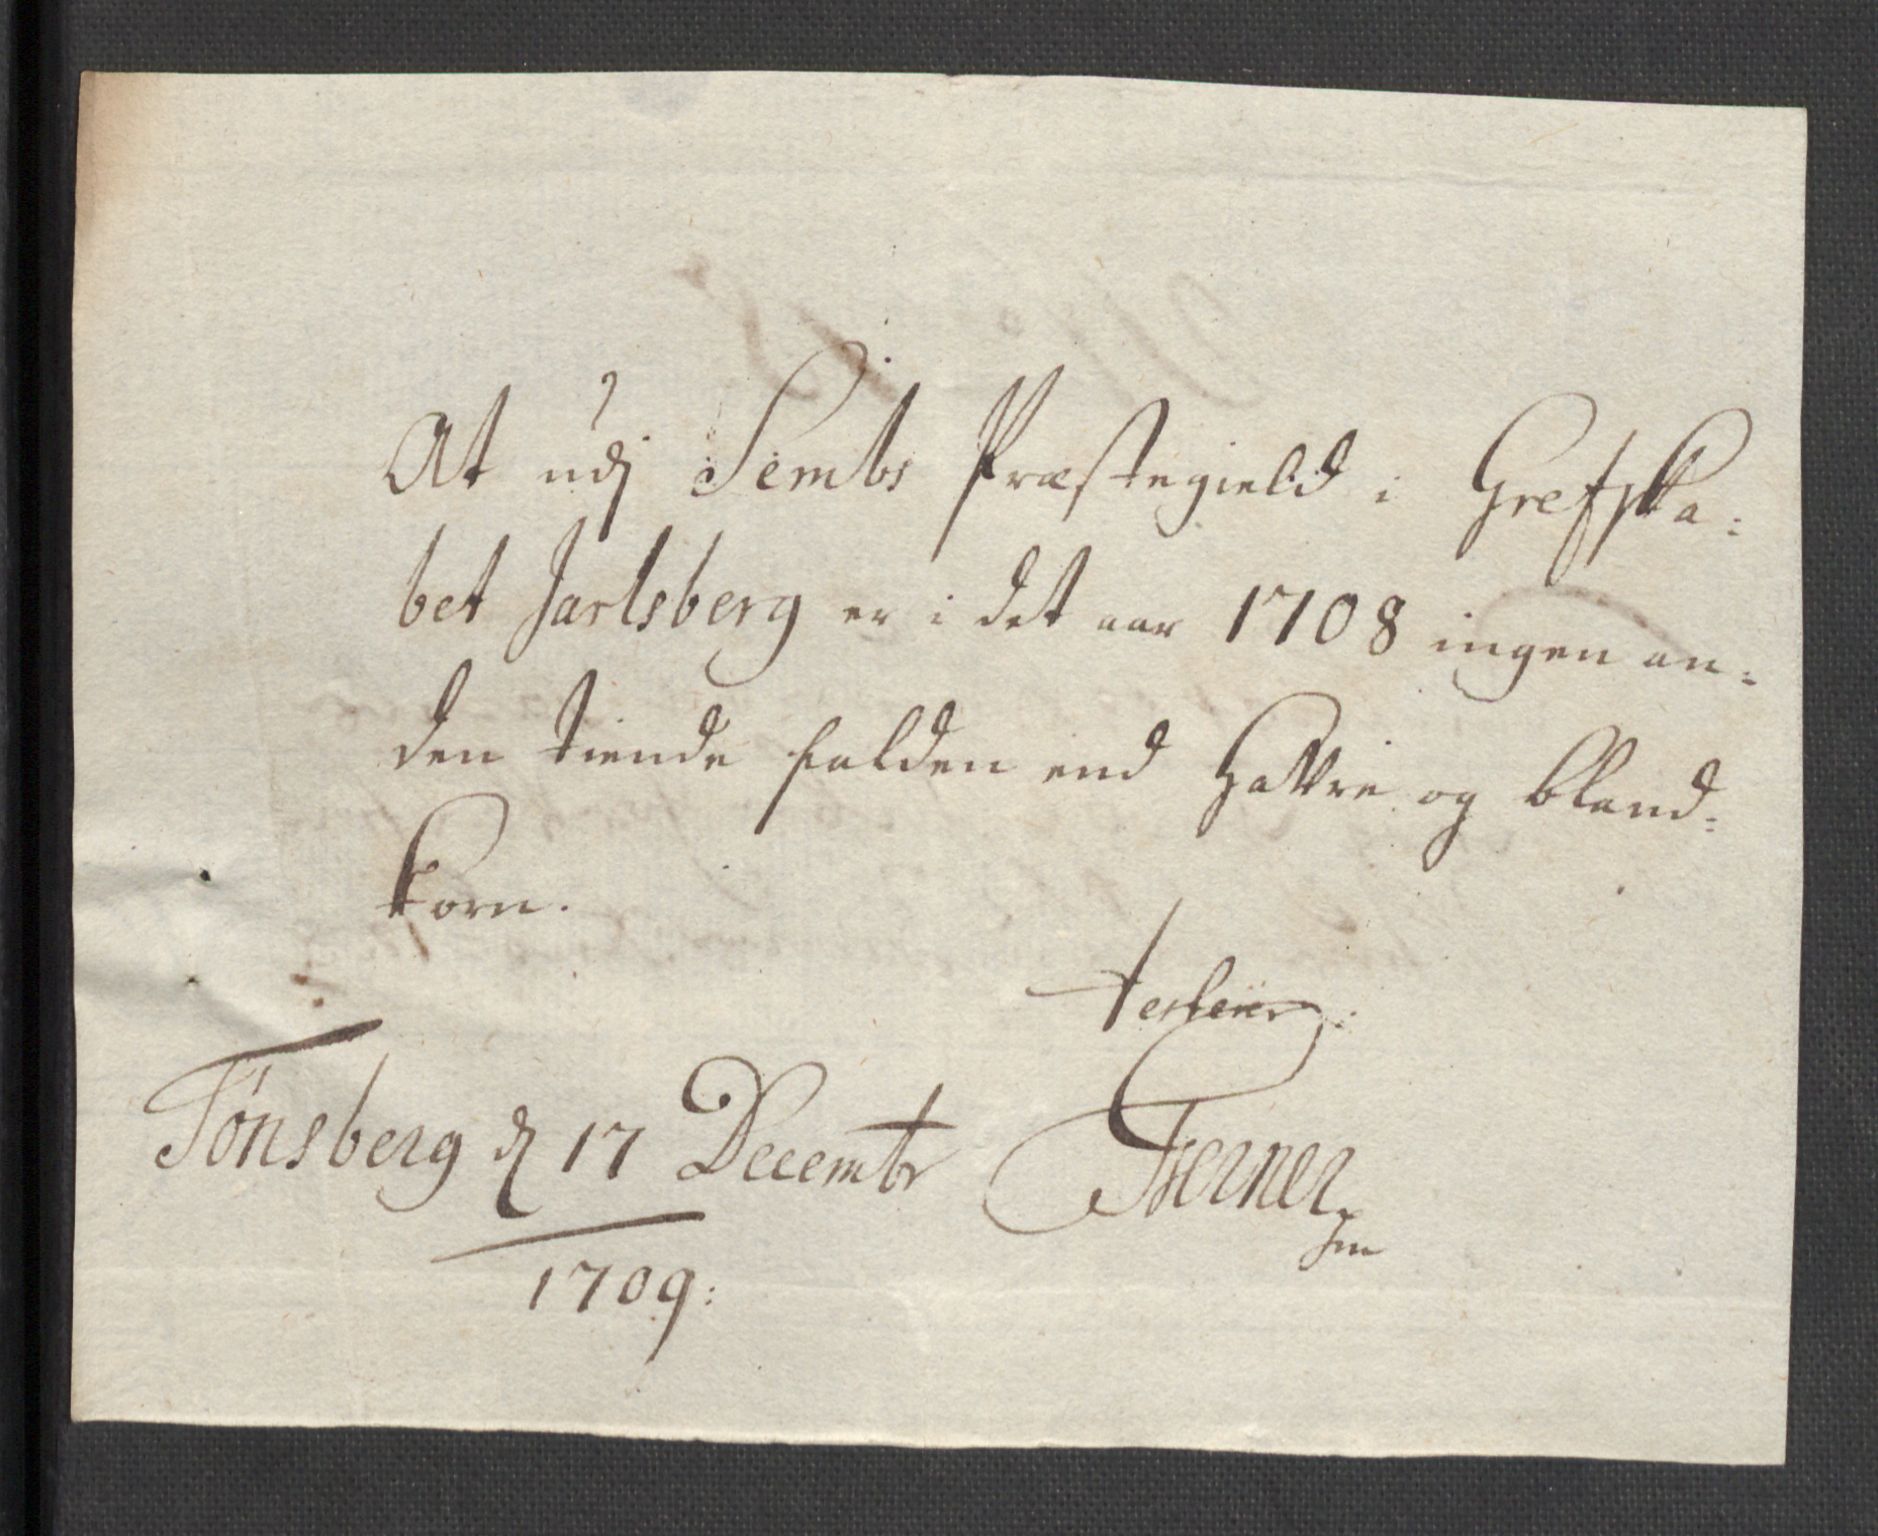 At udj Sembs Præstegield i Grefska:
bet Jarlsberg er i det aar 1708 ingen an:
den tiende falden end Hafre og bland:
korn.
testerer
Tønsberg d 17 Decembr
1709: